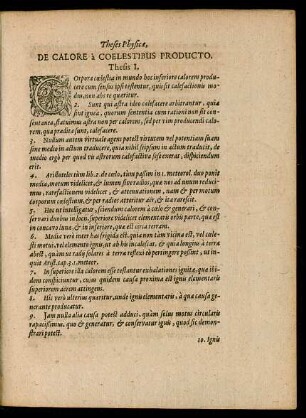 Theses Physicæ,
DE CALORE à COELESTIBUS PRODUCTO.
Thesis I.
Corpora cœlestia in mundo hoc inferiore calorem produ-
cere cum sensus ipsi testentur, quis sit calefactionis mo-
dus, non abs re queritur.
2. Sunt qui astra ideo calefacere arbitrantur, quia
sint ignea, quorum sententia cum rationi non sit con-
sentanea, statuimus astra non per calorem, sed per vim producendi calo-
rem, qua prædita sunt, calefacere.
3. Non autem virtuale agens potest virtutem vel potentiam suam
sine medio in actum traducere, quia nihil seipsum in actum traducit, de
medio ergò per quod vis astrorum calefactiva sese exerat, dispiciendum
erit.
4. Aristoteles tùm lib. 2. de cœlo, tùm passim in 1. meteorol. duo ponit
media, motum videlicet, & lumen siderea, quæ nec ad unum reduci
 rarefactionem videlicet, & attenuationem, nam & per motum
corporum cœlestium, & per radios atteritur aër, & ita rarescit.
5. Hoc ut intelligatur, sciendum calorem à cœlo & generari, & con-
servari divino in loco, superiore videlicet elementaris orbis parte, quæ est
in concavo lunæ, & in inferiore, quæ est circa terram.
6. Media verò inter has frigida est, quia non tam vicina est, vel cœ-
lesti motui, vel elemento ignis, ut ab his incalescat, & quia longius à terra
abest, quam ut radij solares à terra reflexi eò pertingere possint, ut in-
quit Arist. cap. 3. 1. meteor.
7. In superiore ista calorem esse testantur exhalationes ignitæ, quæ ibi-
dem conspiciuntur, cum quidem causa proxima est ignis elementaris
superiorem aërem attingens.
8. Hic verò ulterius queritur, unde ignis elementaris, à qua causa ge-
neretur producatur.
9. Jam nulla alia causa potest adduci, quàm solus motus circularis
rapacissimus, quo & generatur, & conservatur ignis, quod sic demon-
strari potest.
10. Ignis